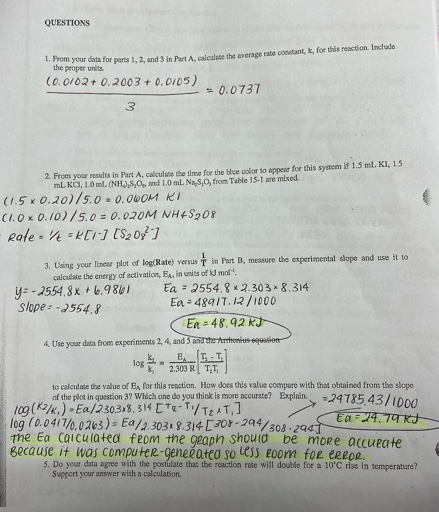 QUESTIONS
1. From your data for parts 1, 2, and 3 in Part A, calculate the average rate constant, k, for this reaction. Include
the proper units.
(0.0102 + 0.2003 + 0.0105)
3
= 0.0737
2. From your results in Part A, calculate the time for the blue color to appear for this system if 1.5 mL KI, 1.5
mL KCl, 1.0 mL (NH₄)₂S₂O₈, and 1.0 mL Na₂S₂O₃ from Table 15-1 are mixed.
(1.5 x 0.20)/5.0 = 0.060M KI
(1.0 x 0.10)/5.0 = 0.020M NH4S2O8
Rate = 1/t = K[I-] [S2O8²-]
3. Using your linear plot of log(Rate) versus 1/T in Part B, measure the experimental slope and use it to
calculate the energy of activation, EA, in units of kJ mol⁻¹.
y = -2554.8x + 6.9861
Ea = 2554.8 x 2.303 x 8.314
Slope = -2554.8
Ea = 48917.12/1000
Ea = 48.92 KJ
4. Use your data from experiments 2, 4, and 5 and the Arrhenius equation
log k₂/k₁ = EA/2.303 R [T₂ - T₁/T₂T₁]
to calculate the value of EA for this reaction. How does this value compare with that obtained from the slope
of the plot in question 3? Which one do you think is more accurate? Explain.
= 24785.43/1000
log(K2/K1) = Ea/2303x8.314 [T2-T1/T2xT1]
Ea = 24.79 KJ
log(0.0417/0.0263) = Ea/2.303x8.314 [308-294/308.294]
The Ea calculated from the graph should be more accurate
Because it was computer-generated so less room for error.
5. Do your data agree with the postulate that the reaction rate will double for a 10°C rise in temperature?
Support your answer with a calculation.